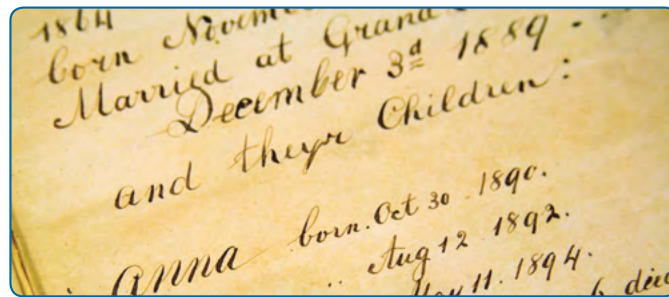 1864
born Novem
Married at Grand
December 3d 1889
and theyr Children:
Anna born. Oct 30 1890.
" Aug 12 1892.
11. 1894.